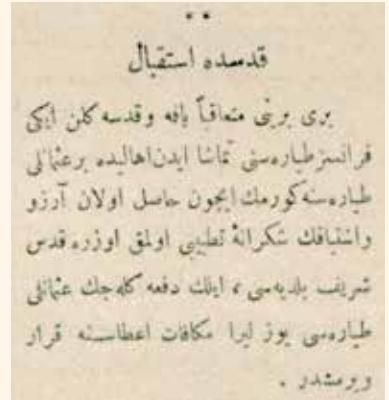 قدسده استقبال
بری برینی متعاقباً یافه و قدسه كلن ایكی
فرانسز طیاره‌سنی تماشا ایدن اهالیده بر عثمانلی
طیاره‌سنه كورمك ایچون حاصل اولان آرزو
واشتیاقك شكرانهٔ تطیبی اولمق اوزره قدس
شریف بلدیه‌سی ، ایلك دفعه كله جك عثمانلی
طیاره‌سی یوز لیرا مكافات اعطاسنه قرار
ویرمشدر .